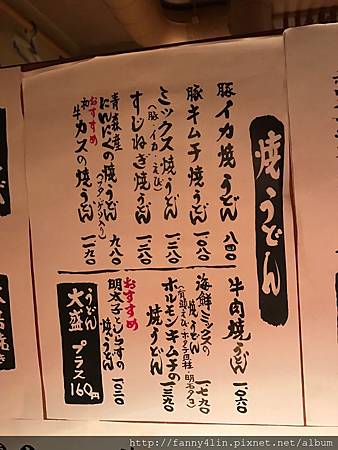 焼うどん
豚イカ焼うどん 八四〇
豚キムチ焼うどん 一〇八〇
ミックス焼うどん 一三八〇
(豚・イカ・えび)
すじねぎ焼うどん 一三八〇
青森産
にんにくの焼うどん 九八〇
おすすめ
和牛カスの焼うどん 一一九〇
牛肉焼うどん 一〇六〇
海鮮ミックスの焼うどん 一七九〇
ホルモンキムチの焼うどん 一三九〇
おすすめ
明太子としらすの焼うどん 一〇三〇
うどん大盛プラス160円
http://fanny4lin.pixnet.net/album